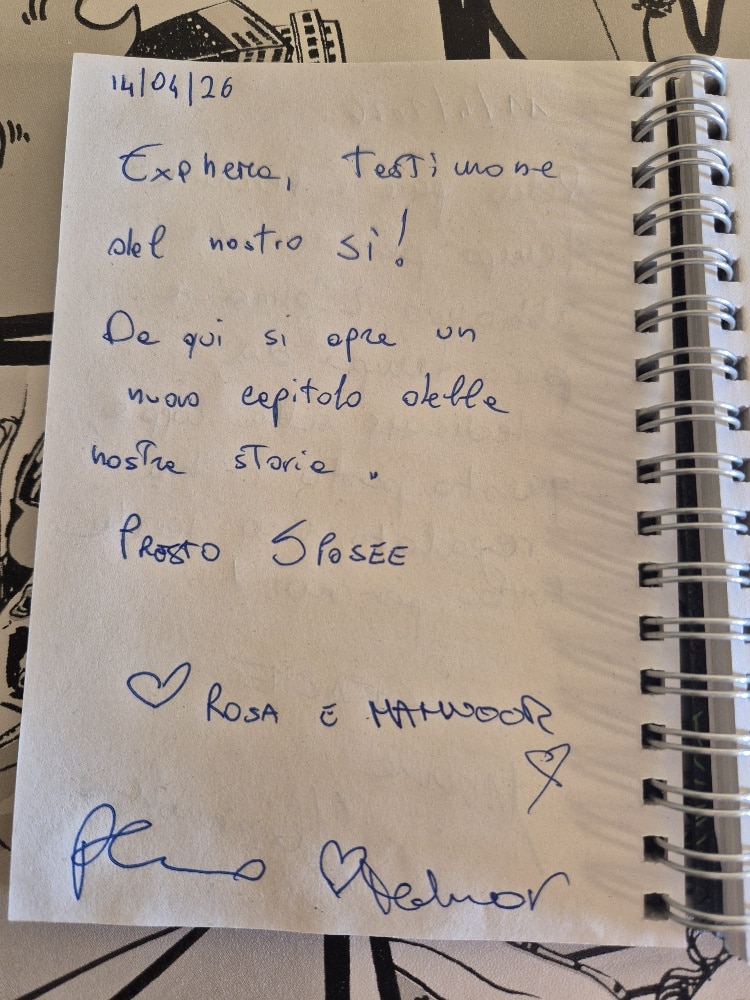 14/04/26
Exphera, testimone
del nostro sì!
Da qui si apre un
nuovo capitolo della
nostra storia.
PROSTO SPOSEE
ROSA E